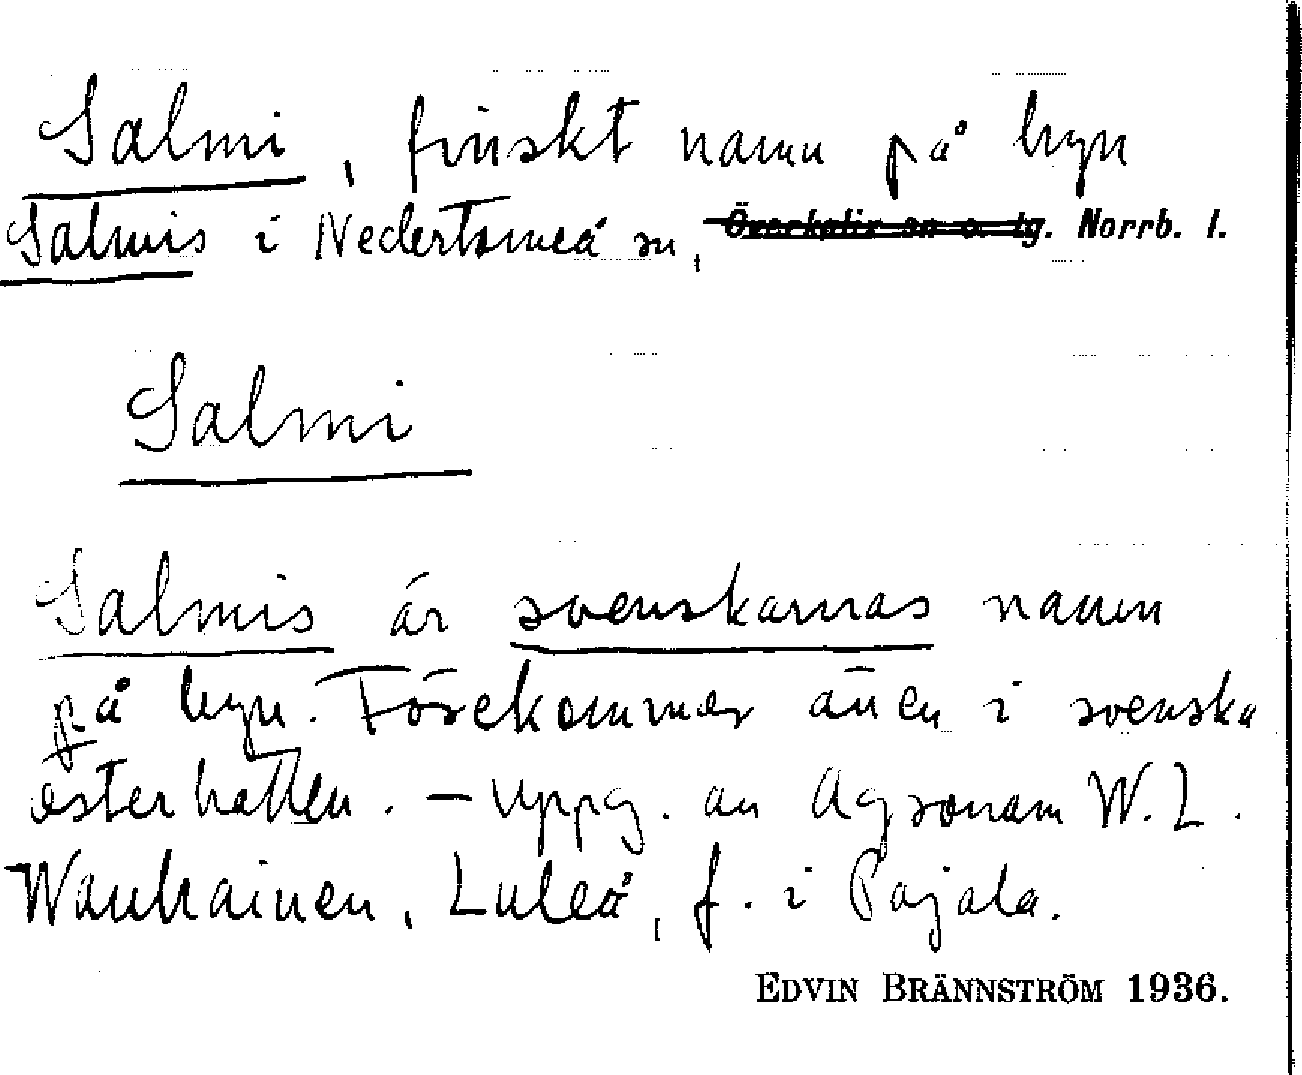 Salmi, finskt namn på byn
Salmis i Nedertorneå sn, Överkalix sn o. tg. Norrb. l.
Salmi
Salmis är svenskarnas namn
på byn. Förekommer även i svenska
österbotten. – Uppg. av Agronom W. L.
Wanhainen, Luleå, f. i Pajala.
EDVIN BRÄNNSTRÖM 1936.